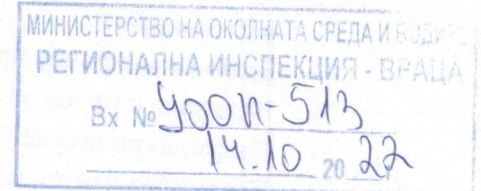 МИНИСТЕРСТВО НА ОКОЛНАТА СРЕДА И ВОДИТЕ
РЕГИОНАЛНА ИНСПЕКЦИЯ - ВРАЦА
Вх № УООП-513
14.10 20 22